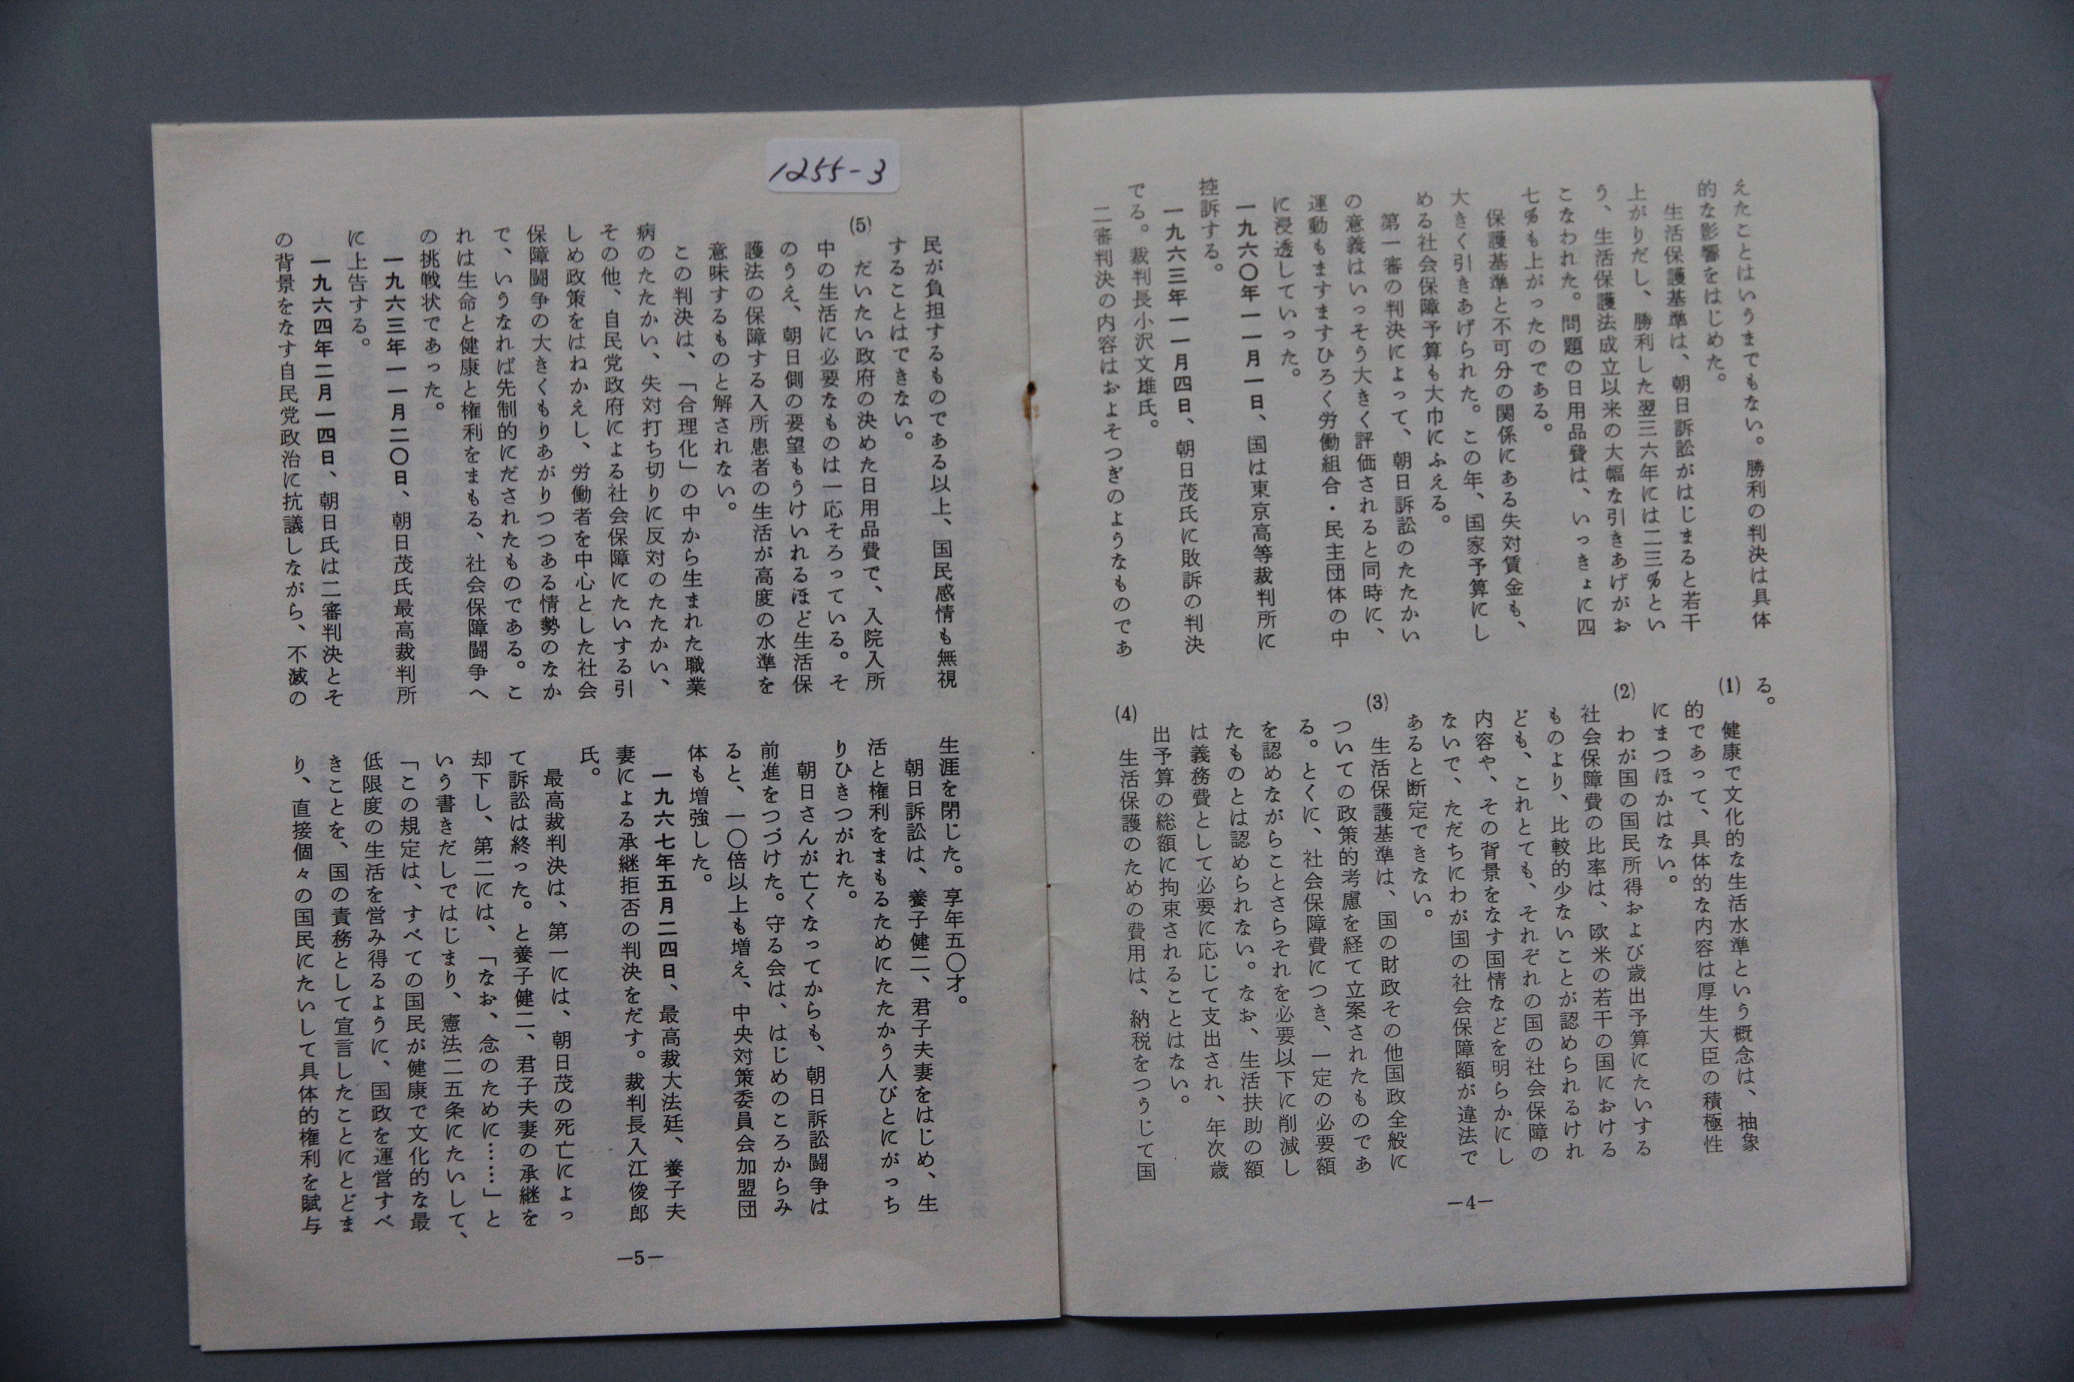 えたことはいうまでもない。勝利の判決は具体
的な影響をはじめた。
生活保護基準は、朝日訴訟がはじまると若干
上がりだし、勝利した翌三六年には二三％とい
う、生活保護法成立以来の大幅な引きあげがお
こなわれた。問題の日用品費は、いっきょに四
七％も上がったのである。
保護基準と不可分の関係にある失対賃金も、
大きく引きあげられた。この年、国家予算にし
める社会保障予算も大巾にふえる。
第一審の判決によって、朝日訴訟のたたかい
の意義はいっそう大きく評価されると同時に、
運動もますますひろく労働組合・民主団体の中
に浸透していった。
一九六〇年一一月一日、国は東京高等裁判所に
控訴する。
一九六三年一一月四日、朝日茂氏に敗訴の判決
でる。裁判長小沢文雄氏。
二審判決の内容はおよそつぎのようなものであ
る。
(1) 健康で文化的な生活水準という概念は、抽象
的であって、具体的な内容は厚生大臣の積極性
にまつほかはない。
(2) わが国の国民所得および歳出予算にたいする
社会保障費の比率は、欧米の若干の国における
ものより、比較的少ないことが認められるけれ
ども、これとても、それぞれの国の社会保障の
内容や、その背景をなす国情などを明らかにし
ないで、ただちにわが国の社会保障額が違法で
あると断定できない。
(3) 生活保護基準は、国の財政その他国政全般に
ついての政策的考慮を経て立案されたものであ
る。とくに、社会保障費につき、一定の必要額
を認めながらことさらそれを必要以下に削減し
たものとは認められない。なお、生活扶助の額
は義務費として必要に応じて支出され、年次歳
出予算の総額に拘束されることはない。
(4) 生活保護のための費用は、納税をつうじて国
－4－
1255-3
民が負担するものである以上、国民感情も無視
することはできない。
(5) だいたい政府の決めた日用品費で、入院入所
中の生活に必要なものは一応そろっている。そ
のうえ、朝日側の要望もうけいれるほど生活保
護法の保障する入所患者の生活が高度の水準を
意味するものと解されない。
この判決は、「合理化」の中から生まれた職業
病のたたかい、失対打ち切りに反対のたたかい、
その他、自民党政府による社会保障にたいする引
しめ政策をはねかえし、労働者を中心とした社会
保障闘争の大きくもりあがりつつある情勢のなか
で、いうなれば先制的にだされたものである。こ
れは生命と健康と権利をまもる、社会保障闘争へ
の挑戦状であった。
一九六三年一一月二〇日、朝日茂氏最高裁判所
に上告する。
一九六四年二月一四日、朝日氏は二審判決とそ
の背景をなす自民党政治に抗議しながら、不滅の
生涯を閉じた。享年五〇才。
朝日訴訟は、養子健二、君子夫妻をはじめ、生
活と権利をまもるためにたたかう人びとにがっち
りひきつがれた。
朝日さんが亡くなってからも、朝日訴訟闘争は
前進をつづけた。守る会は、はじめのころからみ
ると、一〇倍以上も増え、中央対策委員会加盟団
体も増強した。
一九六七年五月二四日、最高裁大法廷、養子夫
妻による承継拒否の判決をだす。裁判長入江俊郎
氏。
最高裁判決は、第一には、朝日茂の死亡によっ
て訴訟は終った。と養子健二、君子夫妻の承継を
却下し、第二には、「なお、念のために……」と
いう書きだしではじまり、憲法二五条にたいして、
「この規定は、すべての国民が健康で文化的な最
低限度の生活を営み得るように、国政を運営すべ
きことを、国の責務として宣言したことにとどま
り、直接個々の国民にたいして具体的権利を賦与
－5－